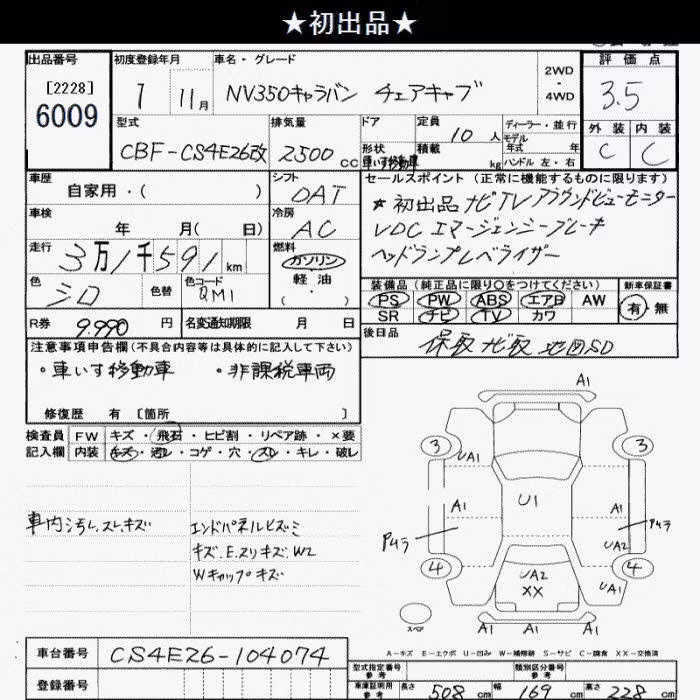 ★初出品★
出品番号
[2228]
6009
初度登録年月
1 11月
車名・グレード
NV350キャラバン チェアキャブ
2WD
・
4WD
評価点
3.5
外装 内装
C C
型式
CBF-CS4E26改
排気量
2500 CC
ドア
形状
車いす移動車
定員
10 人
積載
kg
ディーラー・並行
モデル
年式 年
ハンドル 左・右
車歴
自家用・( )
シフト
OAT
車検
年 月( 日)
冷房
AC
走行
3万1千591 km
燃料
ガソリン
・
軽油
色
シロ
色替
色コード
QM1
R券
9.990 円
名変通知期限 月 日
セールスポイント (正常に機能するものに限ります)
★初出品 ナビTV アラウンドビューモニター
VDC エマージェンシーブレーキ
ヘッドランプレベライザー
装備品(純正品に限り〇をつけてください)
PS PW ABS エアB AW
SR ナビ TV カワ
新車保証書
有・無
後日品
保取 ナビ取 地図SD
注意事項申告欄(不具合内容等は具体的に記入して下さい)
・車いす移動車 ・非課税車両
修復歴 有 〔箇所 〕
検査員
記入欄
FW キズ・飛石・ヒビ割・リペア跡・×要
内装 キズ・汚レ・コゲ・穴・スレ・キレ・破レ
車内汚レ.スレ.キズ
エンドパネルヒズミ
キズ.E.スリキズ.W2
Wキャップキズ
A1
3 3
UA1
A1 U1 A1
Pムラ Pムラ
UA2
4 4
UA2
XX
UA1
スペア
A1 A1 A1
A-キズ E-エクボ U-凹み W-補修跡 S-サビ C-腐食 XX-交換済
車台番号
CS4E26-104074
登録番号
型式指定番号
参考
類別区分番号
参考
車庫証明用
参考
長さ 508 cm 幅 169 cm 高さ 228 cm